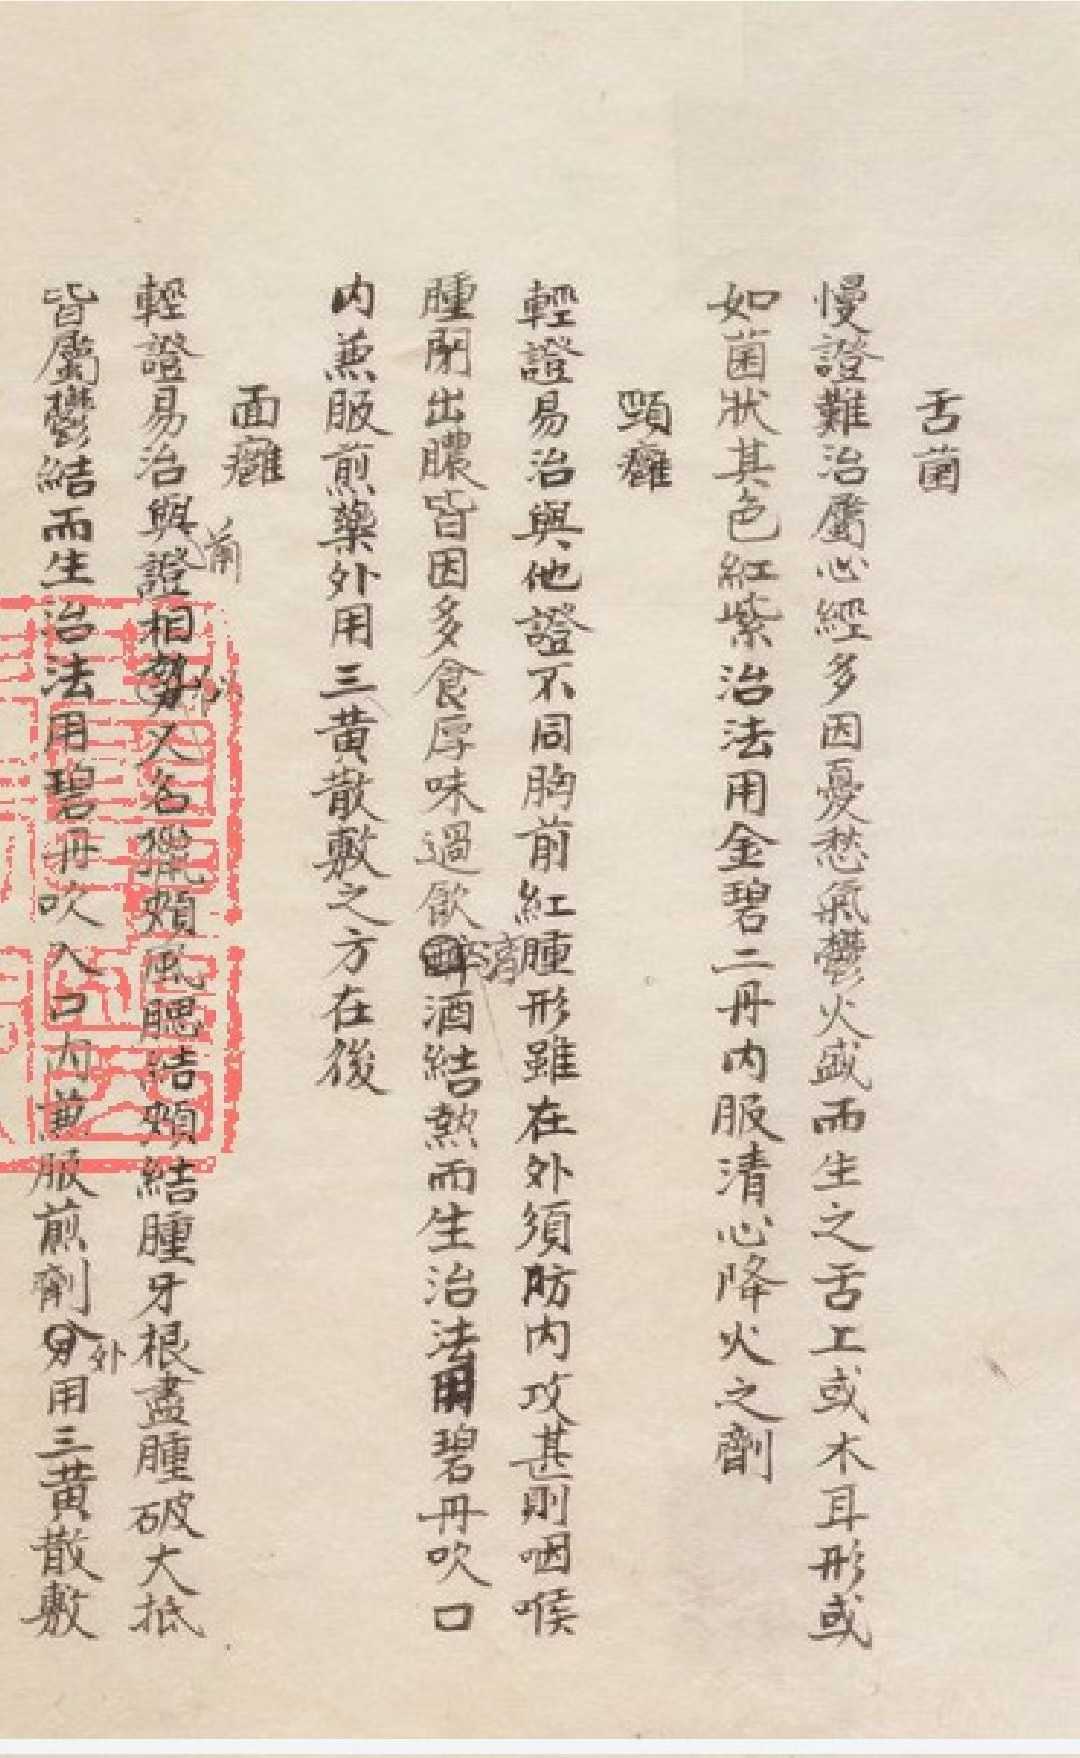 舌菌
慢證難治屬心經多因憂愁氣鬱火盛而生之舌工或木耳形或
如菌狀其色紅紫治法用金碧二丹內服清心降火之劑
頸癰
輕證易治與他證不同胸前紅腫形雖在外須防內攻甚則咽喉
腫閉出膿皆因多食厚味過飲醇酒結熱而生治法用碧丹吹口
內兼服煎藥外用三黃散敷之方在後
面癰
輕證易治與前證相似又名獵頰風腮結頰結腫牙根盡腫破大抵
皆屬鬱結而生治法用碧丹吹入口內兼服煎劑外用三黃散敷